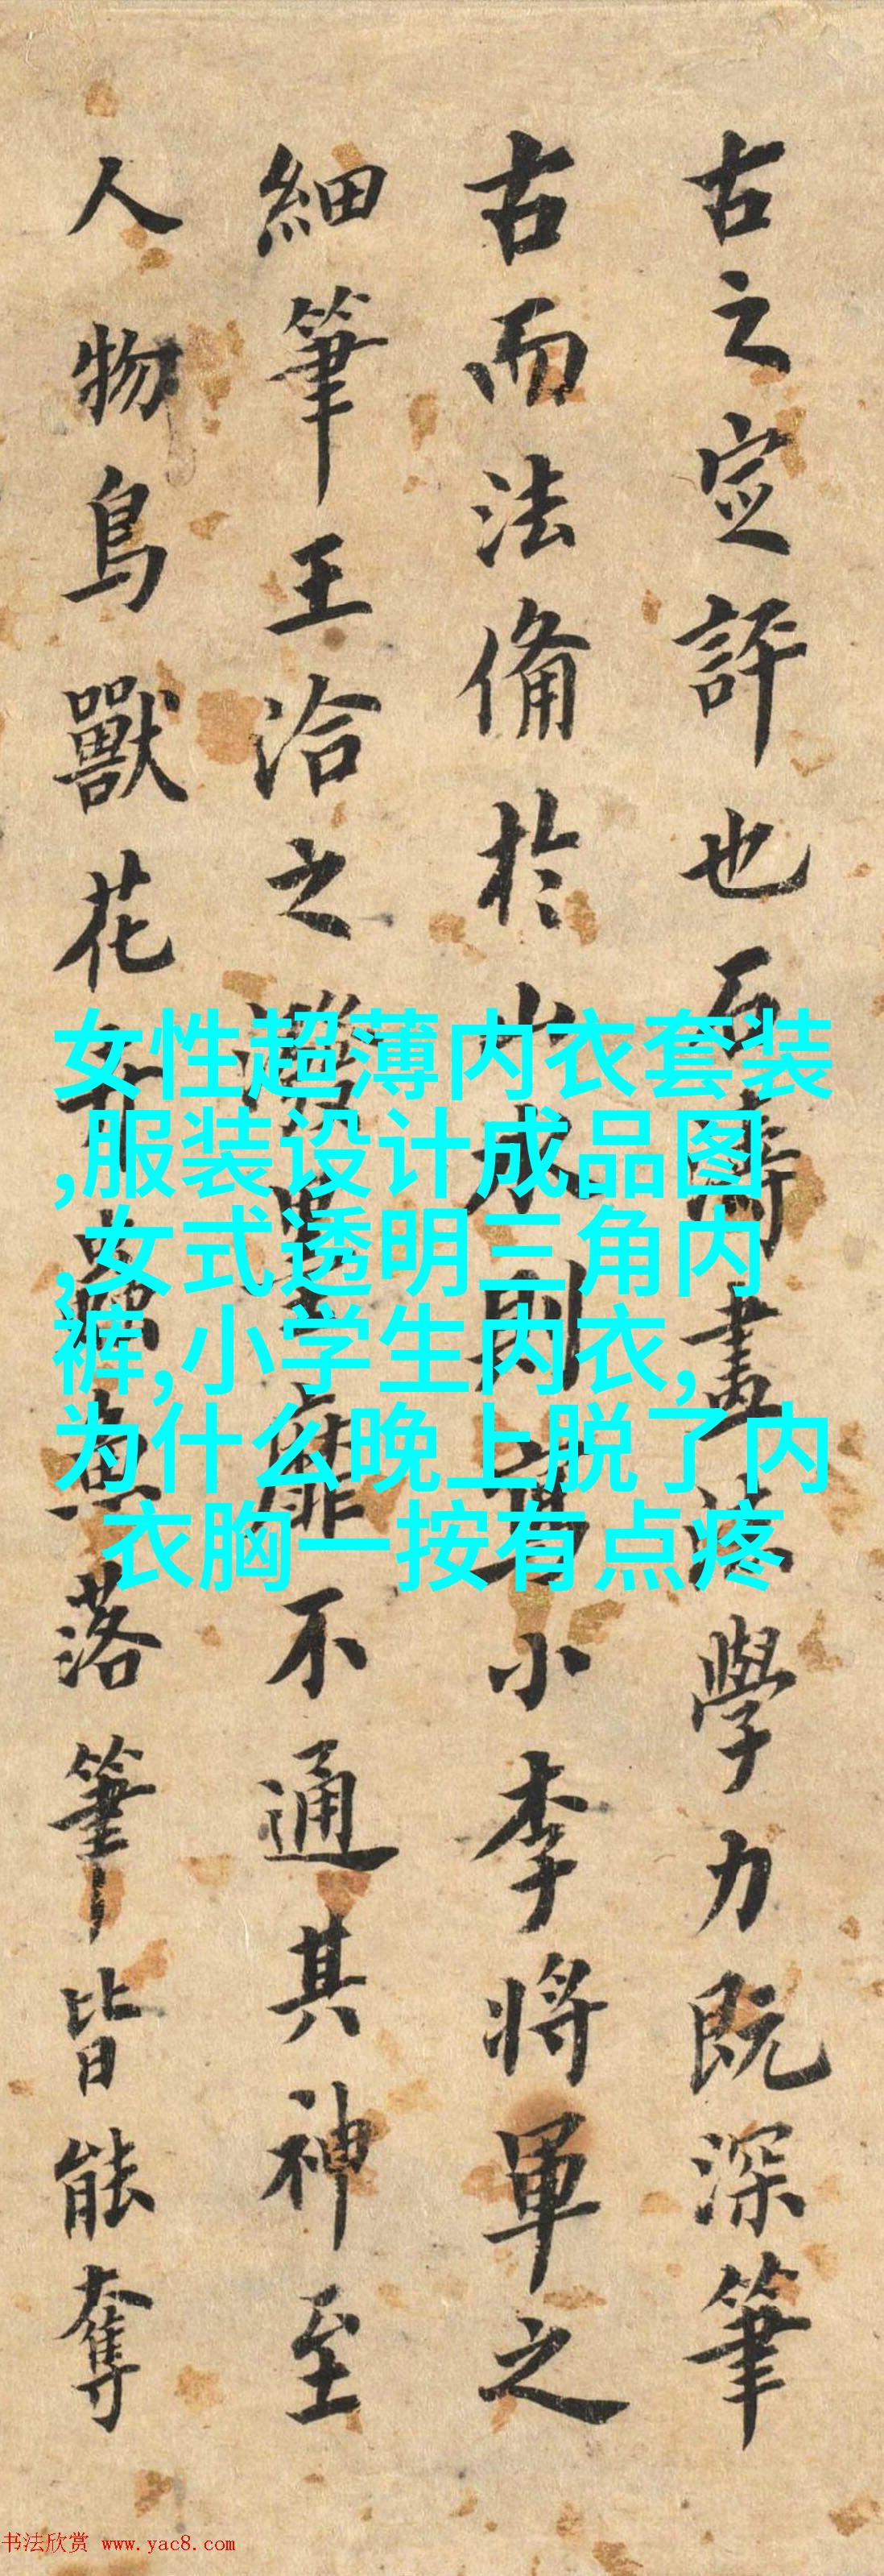 古之定評也石濤畫法學力既深筆
古而法備於山水則寫小李將軍之
細筆王洽之潑墨靡不通其神至
人物鳥獸花卉蟲魚落筆皆能奪
女性超薄内衣套装
,服装设计成品图
,女式透明三角内
裤,小学生内衣,
为什么晚上脱了内
衣胸一按有点疼
书法欣赏 www.yac8.com